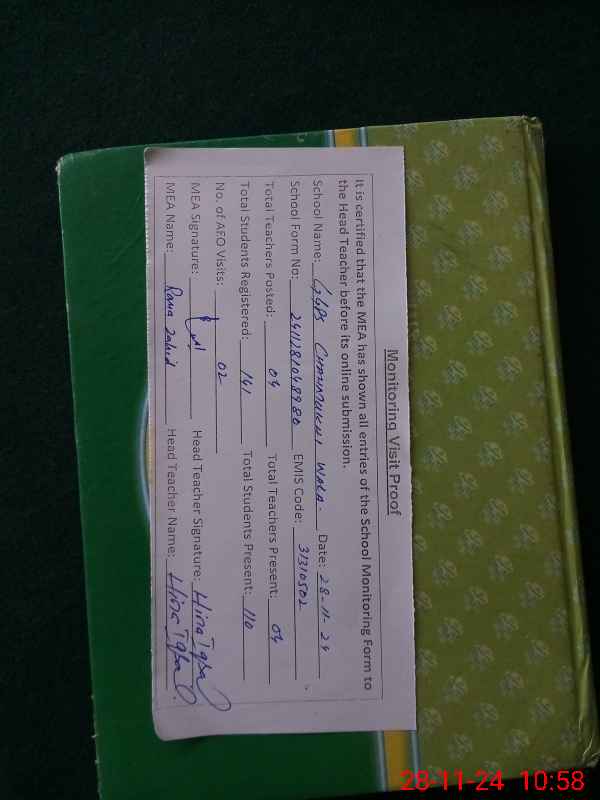 Monitoring Visit Proof
It is certified that the MEA has shown all entries of the School Monitoring Form to
the Head Teacher before its online submission.
School Name: GGPS Date: 28-11-24
School Form No: EMIS Code: 31310502
Total Teachers Posted: 04 Total Teachers Present: 04
Total Students Registered: 141 Total Students Present: 110
No. of AEO Visits: 02
MEA Signature: Head Teacher Signature: Hina Iqbal
MEA Name: Rana Zahid Head Teacher Name: Hina Iqbal
28-11-24 10:58